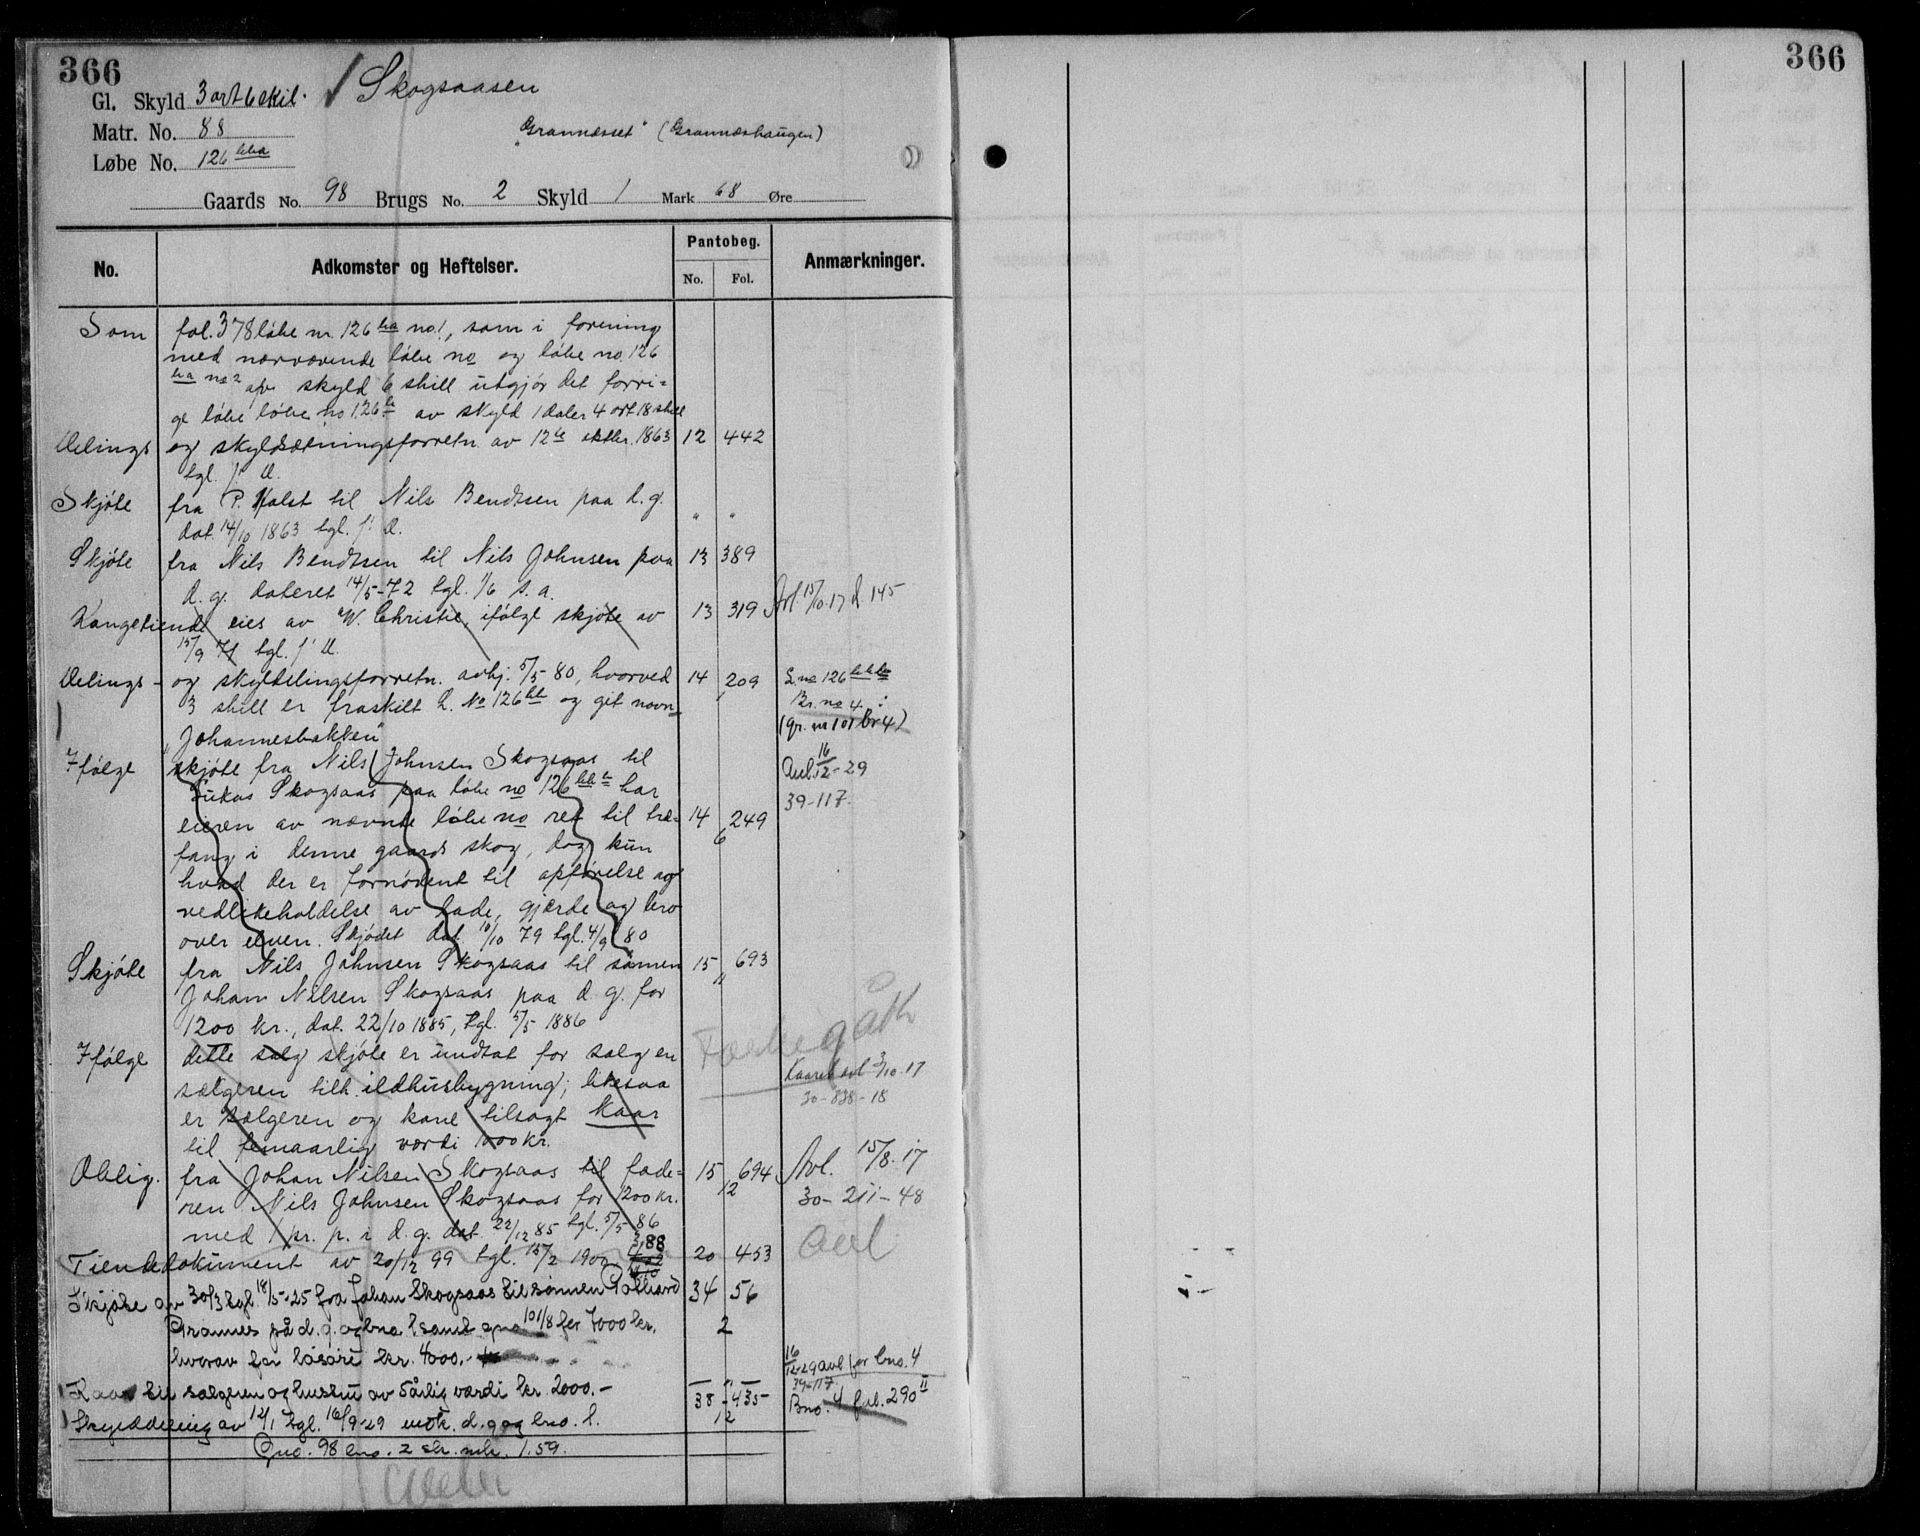 366
366
Gl. Skyld 3 ort 6 skil. Skogsaasen
Matr. No. 88 "Grannesset" (Grannæshaugen)
Løbe No. 126 bba
Gaards No. 98 Brugs No. 2 Skyld 1 Mark 68 Øre
No. Adkomster og Heftelser. Pantobeg. Anmærkninger.
No. Fol.
Som fol. 378 løbe nr. 126 ba no 1, som i forening
med nærværende løbe no og løbe no. 126
ba no 2 av skyld 6 skill utgjør det forri-
ge løbe no 126 b av skyld 1 daler 4 ort 18 skill
Delings og skyldsætningsforretn. av 12te oktbr. 1863 12 442
tgl. s. D.
Skjøte fra P. Holst til Nils Bendtsen paa d. g. " "
dat. 14/10 1863 tgl. s. D.
Skjøte fra Nils Bendtsen til Nils Johnsen paa 13 389
d. g. dateret 14/5-72 tgl. 1/6 s. a.
Kongetiende eies av W. Christie, ifølge skjøte av 13 319 Avl 15/10.17 d 145
15/9 71 tgl. s. D.
Delings- og skylddelingsforretn. avhj. 5/5-80, hvorved 14 209 L. no 126
3 skill er fraskilt L. No 126 og git navn Br. no 4
"Johannesbakken" (gr. nr 101 br 4)
Ifølge skjøte fra Nils Johnsen Skogsaas til Avl. 16/12-29
Lukas Skogsaas paa løbe no 126 har 39-117.
eieren av nævnte løbe no ret til træ- 14 249
fang i denne gaards skog, dog kun 6
hvad der er fornødent til opførelse og
vedlikeholdelse av lade, gjærde og bro
over elven. Skjødet dat. 10/10 79 tgl. 4/9 80
Skjøte fra Nils Johnsen Skogsaas til sønnen 15 693
Johan Nilsen Skogsaas paa d. g. for "
1200 kr., dat. 22/10 1885, tgl. 5/5 1886
Ifølge dette salg skjøte er undtat for salg en
sælgeren tilh. ildhusbygning; likesaa Kaaret avl 3/10.17
er sælgeren og kone tilsagt kaar 30-838-18
til femaarlig værdi 1000 kr.
Oblig. fra Johan Nilsen Skogsaas til fade- 15 694 Avl. 15/8.17
ren Nils Johnsen Skogsaas for 1200 kr. 12 30-211-48
med 1 pr. p. i d. g. dat 22/12 85 tgl. 5/5 86 avl
Tiendedokument av 20/12 99 tgl. 15/2 1900 20 453
Skjøte av 30/3 tgl. 18/5-25 fra Johan Skogsaas til sønnen 34 56
Grannes på d. g. og bno 1 samt gno 101/8 for 7000 kr. 2
hvorav for løsøre kr. 4000.-
Kaar til sælgeren og hustru av 5årlig værdi kr. 2000.- — " — 16/12-29 avl for bno. 4
39-117.
Skylddeling av 12/1 tgl. 16/9-29 mot d. g og bno. 1. 38 435 Bno. 4 fol. 290 II
12
Gno. 98 bno. 2 sk. mk. 1.59.